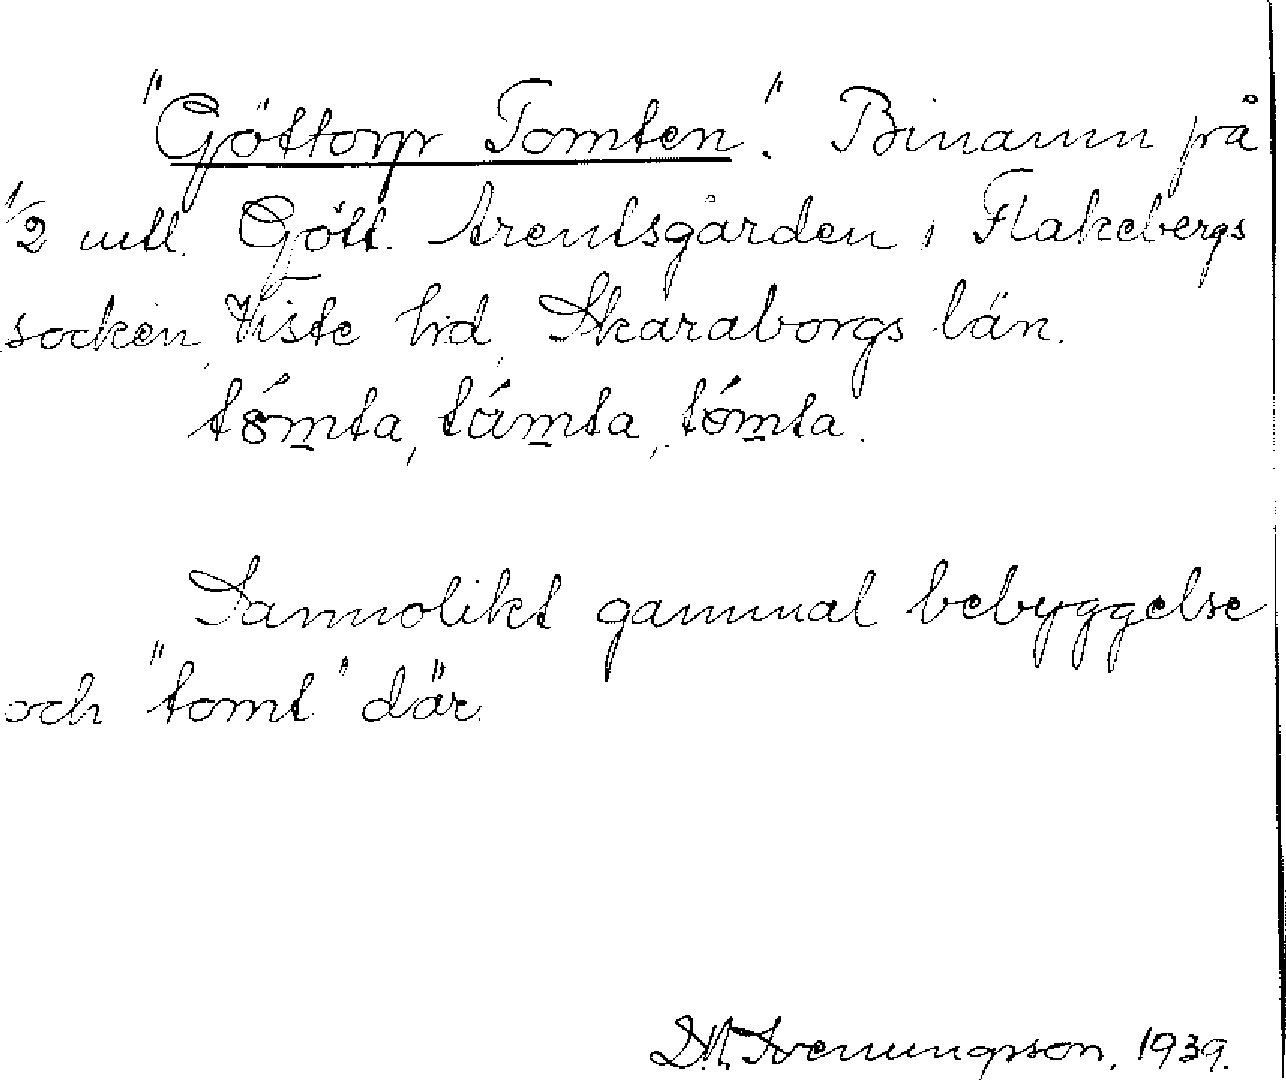 "Göttorp Tomten". Binamn på
1/2 mtl. Gött. Arentsgården i Flakebergs
socken, Viste hd, Skaraborgs län.
tómta, tǘmta, tómta.
Sannolikt gammal bebyggelse
och "tomt" där.
Svenungsson, 1939.